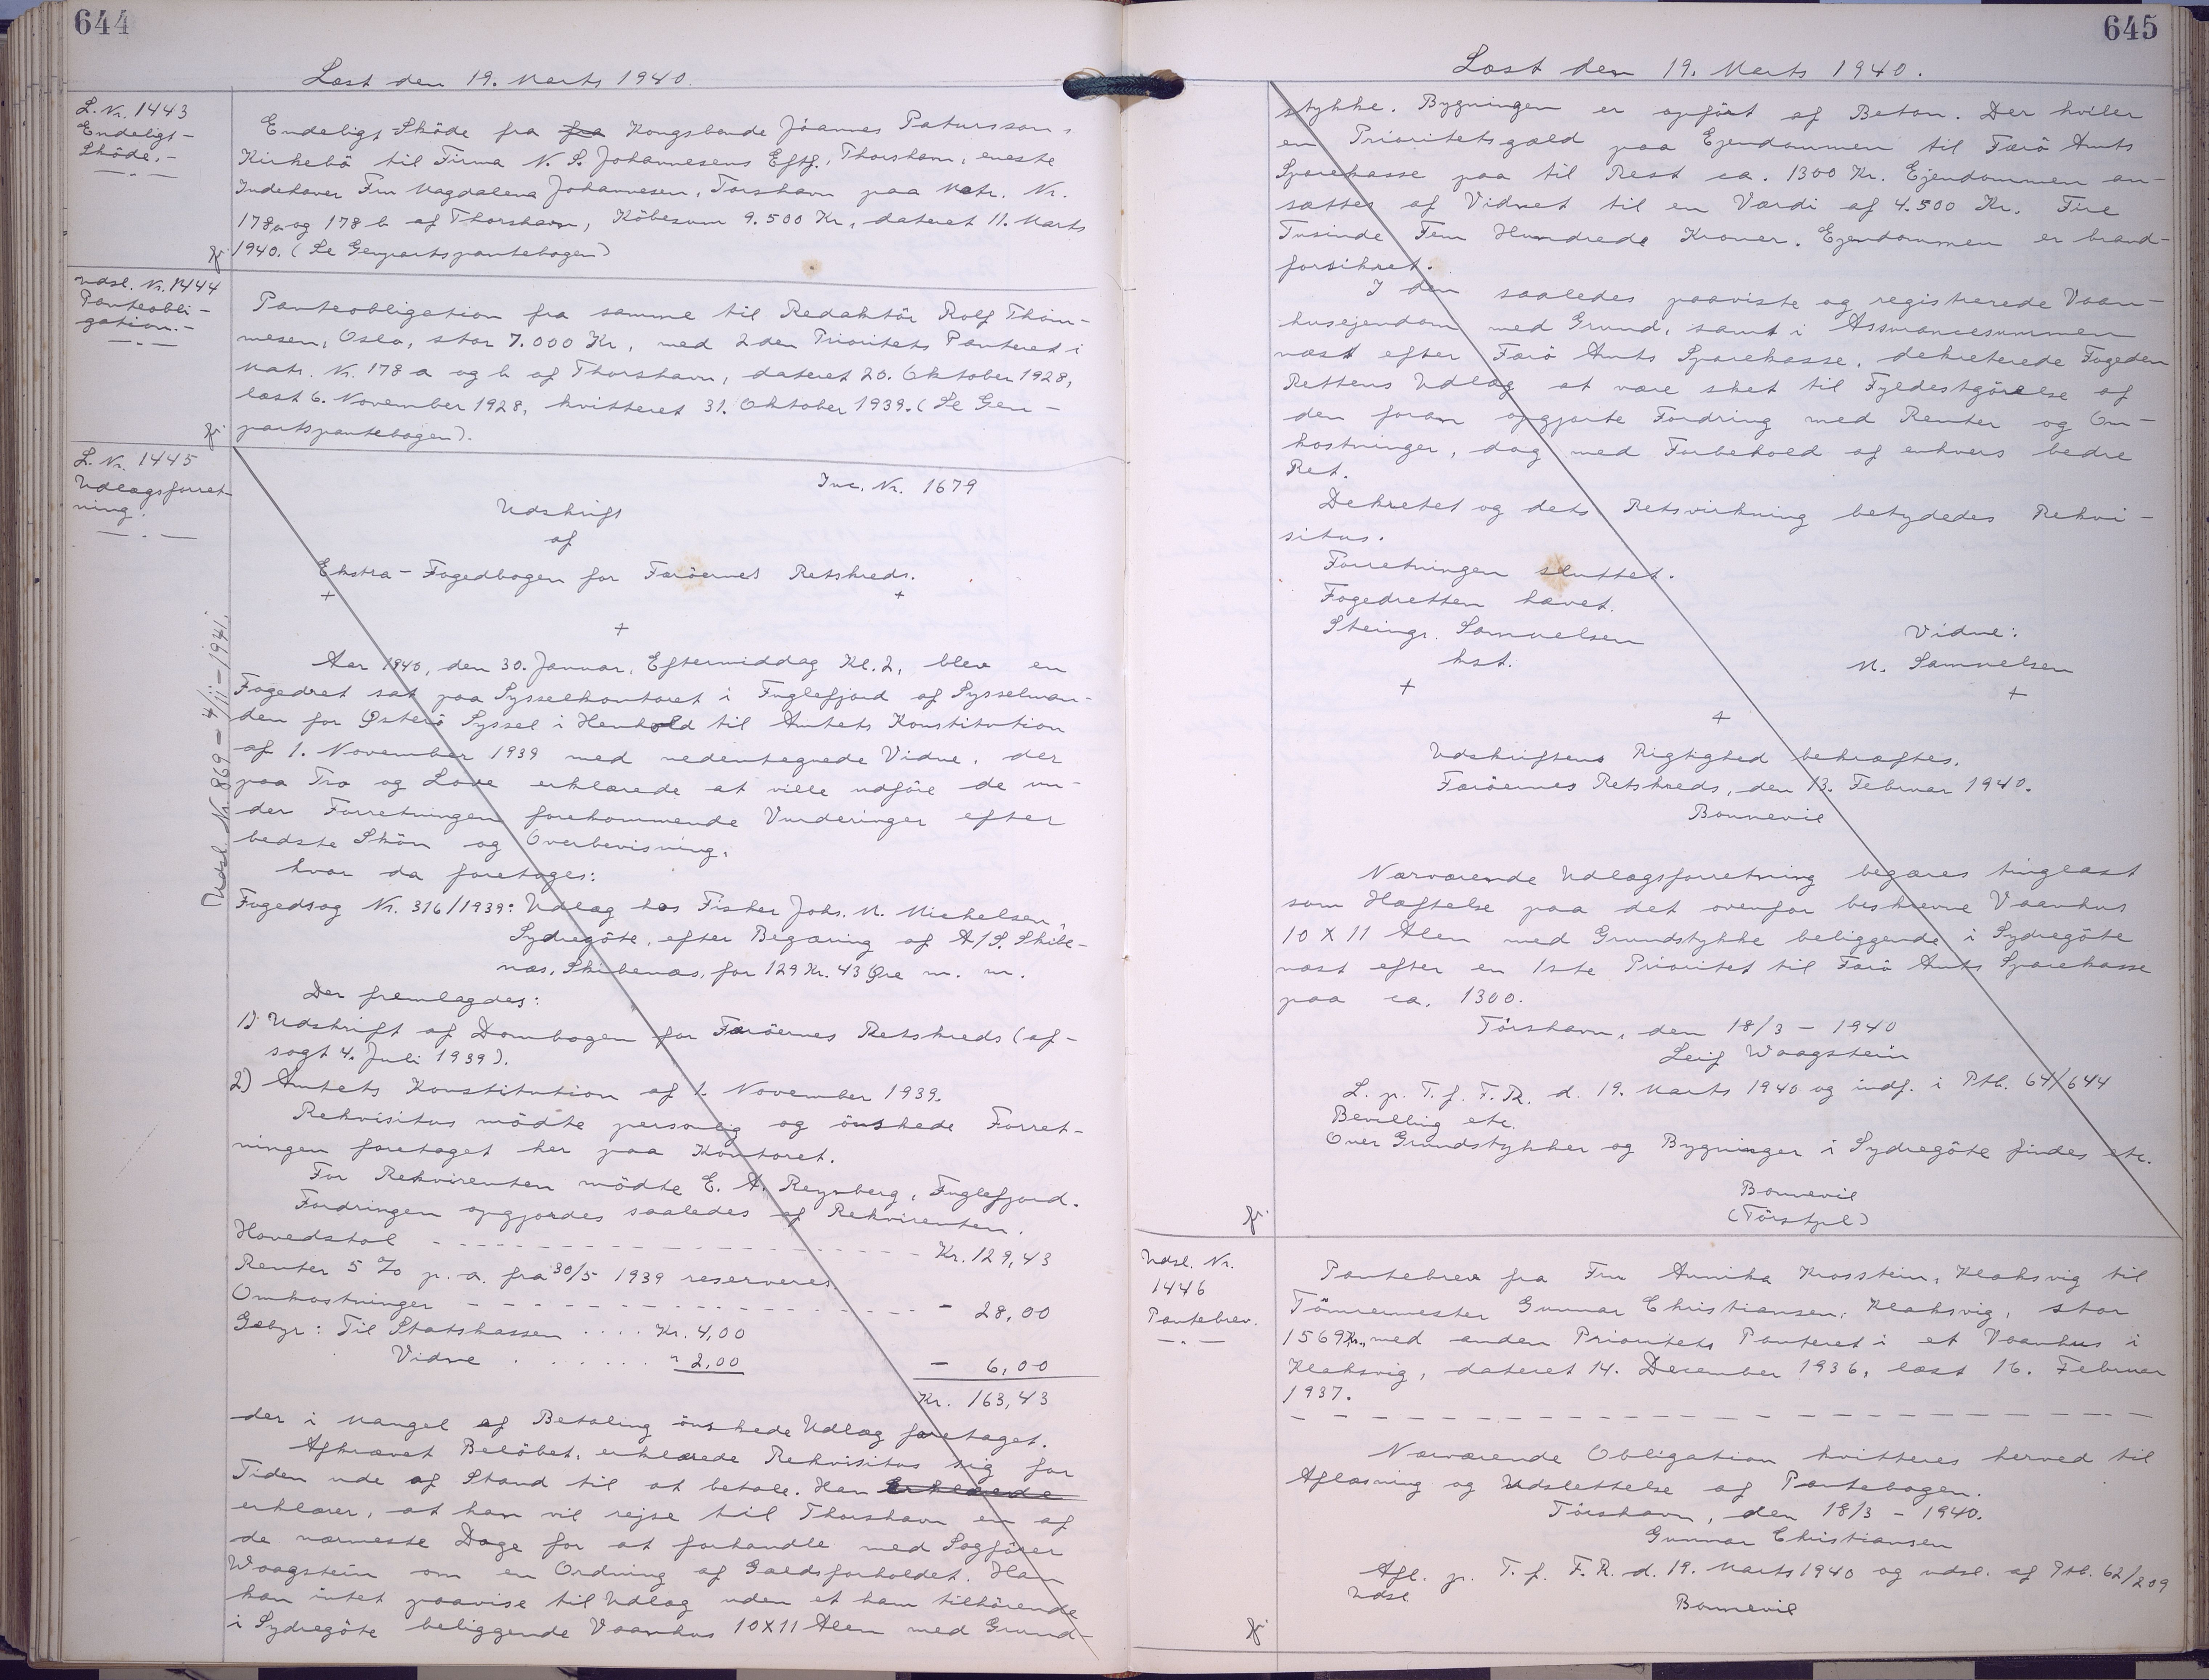 644
Læst den 19. Marts 1940.
L. Nr. 1443
Endeligt-
Sköde.-
Endeligt Sköde fra fra Kongsbonde Jóannes Patursson,
Kirkebö til Firma N. S. Johannesens Eftf., Thorshavn, eneste
Indehaver Fru Magdalena Johannesen, Torshavn paa Matr. Nr.
178a og 178 b af Thorshavn, Köbesum 9.500 Kr., dateret 11. Marts
1940. (Se Genpartspantebogen)
Udsl. Nr. 1444
Panteobli-
gation.-
Panteobligation fra samme til Redaktör Rolf Thom-
mesen, Oslo, stor 7.000 Kr, med 2den Prioritets Panteret i
Matr. Nr. 178 a og b af Thorshavn, dateret 20. Oktober 1928,
læst 6. November 1928, kvitteret 31. Oktober 1939. (Se Gen-
partspantebogen).
L. Nr. 1445
Udlægsforret-
ning.
Udsl. Nr. 869 - 4/11 - 1941.
Inc. Nr. 1679
Udskrift
af
Ekstra-Fogedbogen for Færöernes Retskreds.
+ +
+
Aar 1940, den 30. Januar, Eftermiddag Kl. 2, blev en
Fogedret sat paa Sysselkontoret i Fuglefjord af Sysselman-
den for Østerö Syssel i Henhold til Amtets Konstitution
af 1. November 1939 med nedentegnede Vidne, der
paa Tro og Love erklærede at ville udföre de un-
der Forretningen forekommende Vurderinger efter
bedste Skön og Overbevisning,
hvor da foretoges:
Fogedsag Nr. 316/1939: Udlæg hos Fisker Johs. M. Michelsen,
Sydregöte, efter Begæring af A/S. Skibe-
næs, Skibenæs, for 129 Kr. 43 Øre m. m.
Der fremlagdes:
1) Udskrift af Dombogen for Færöernes Retskreds (af-
sagt 4. Juli 1939).
2) Amtets Konstitution af 1. November 1939.
Rekvisitus mödte personlig og önskede Forret-
ningen foretaget her paa Kontoret.
For Rekvirenten mödte E. A. Reynberg, Fuglefjord.
Fordringen opgjordes saaledes af Rekvirenten.
Hovedstol - - - - - - - - - - Kr. 129,43
Renter 5 % p. a. fra 30/5 1939 reserveres
Omkostninger - - - - - - - - - - - 28,00
Gebyr: Til Statskassen .... Kr. 4,00
Vidne ....... " 2,00 - 6,00
Kr. 163,43
der i Mangel af Betaling önskede Udlæg foretaget.
Afkrævet Belöbet, erklærede Rekvisitus sig for
Tiden ude af Stand til at betale. Han erklærede
erklærer, at han vil rejse til Thorshavn en af
de nærmeste Dage for at forhandle med Sagförer
Waagstein om en Ordning af Gældsforholdet. Han
kan intet paavise til Udlæg uden et ham tilhörende
i Sydregöte beliggende Vaanhus 10X11 Alen med Grund-
645
Læst den 19. Marts 1940.
stykke. Bygningen er opfört af Beton. Der hviler
en Prioritetsgæld paa Ejendommen til Færö Amts
Sparekasse paa til Rest ca. 1300 Kr. Ejendommen an-
sættes af Vidnet til en Værdi af 4.500 Kr. Fire
Tusinde Fem Hundrede Kroner. Ejendommen er brand-
forsikret.
I den saaledes paaviste og registrerede Vaan-
husejendom med Grund, samt i Assurancesummen
næst efter Færö Amts Sparekasse, dekreterede Fogeden
Rettens Udlæg at være sket til Fyldestgörelse af
den foran opgjorte Fordring med Renter og Om-
kostninger, dog med Forbehold af enhvers bedre
Ret.
Dekretet og dets Retsvirkning betydedes Rekvi-
situs.
Forretningen sluttet.
Fogedretten hævet.
Steingr. Samuelsen Vidne:
kst. M. Samuelsen
+ +
+
Udskriftens Rigtighed bekræftes.
Færöernes Retskreds, den 13. Februar 1940.
Bonnevie
Nærværende Udlægsforretning begæres tinglæst
som Hæftelse paa det ovenfor beskrevne Vaanhus
10 X 11 Alen med Grundstykke beliggende i Sydregöte
næst efter en 1ste Prioritet til Færö Amts Sparekasse
paa ca. 1300.
Tórshavn, den 18/3 - 1940
Leif Waagstein
L. p. T. f. F. R. d. 19. Marts 1940 og indf. i Ptb. 64/644
Bevilling etc.
Over Grundstykker og Bygninger i Sydregöte findes etc.
Bonnevie
Udsl. Nr.
1446
Pantebrev.
Pantebrev fra Fru Annika Krosstein, Klaksvig til
Tömrermester Gunnar Christiansen, Klaksvig, stor
1569 Kr., med anden Prioritets Panteret i et Vaanhus i
Klaksvig, dateret 14. December 1936, læst 16. Februar
1937.
Nærværende Obligation kvitteres herved til
Aflæsning og Udslettelse af Pantebogen.
Tórshavn, den 18/3 - 1940.
Gunnar Christiansen
Afl. p. T. f. F. R. d. 19. Marts 1940 og udsl. af Ptb. 62/209
Udsl
Bonnevie